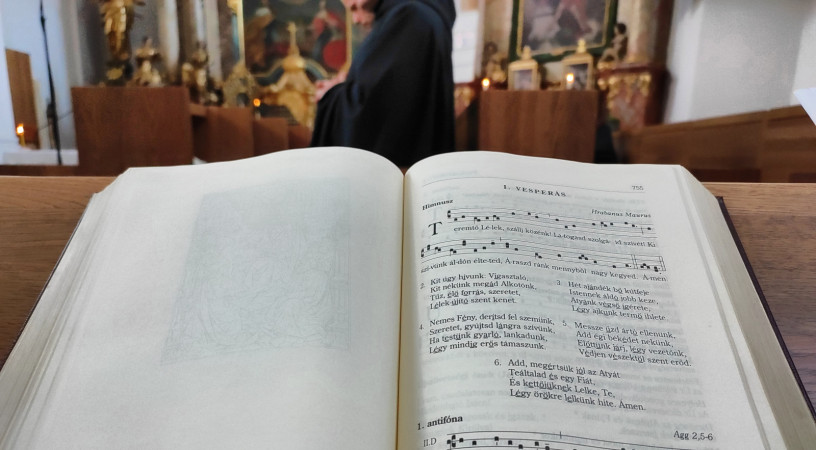 I. VESPERÁS
755
Himnusz
Hrabanus Maurus
Teremtő Lé-lek, szállj közénk! Lá-togasd szolgá- id szívét! Ki
szí-vünk ál-dón élte-ted, Á-raszd ránk mennyből nagy kegyed. Á-men.
2. Kit úgy hívunk: Vigasztaló,
Kit nékünk megád Alkotónk,
Tűz, élő forrás, szeretet,
Lélek üdítő szent kenet.
3. Hét ajándék bő kútfeje
Istennek áldó jobb keze,
Atyánk végső ígérete,
Légy ajkunk termő ihlete.
4. Nemes Fény, derítsd fel szemünk,
Szeretet, gyújtsd lángra szívünk,
Ha testünk gyarló, lankadunk,
Légy mindig erős támaszunk.
5. Messze űzd ártó ellenünk,
Add égi békédet nekünk,
Előttünk járj, légy vezetőnk,
Védjen vészektől szent erőd.
6. Add, megértsük jól az Atyát
Teáltalad és egy Fiát,
És kettőjüknek Lelke, Te,
Légy örökre lelkünk hite. Ámen.
1. antifóna
Agg 2,5-6
II.D